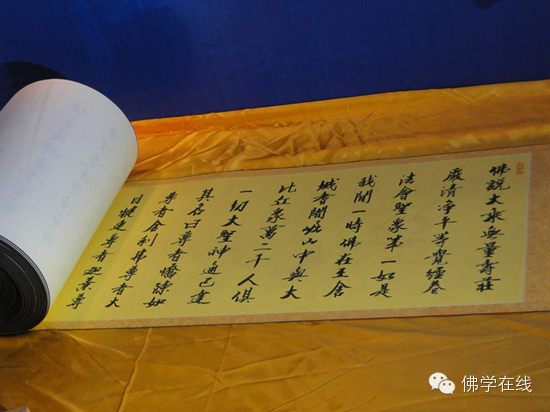 佛說大乘無量壽莊
嚴清淨平等覺經卷
法會聖眾第一如是
我聞一時佛在王舍
城耆闍崛山中與大
比丘眾萬二千人俱
一切大聖神通已達
其名曰尊者憍陳如
尊者舍利弗尊者大
目犍連尊者迦葉尊
佛学在线